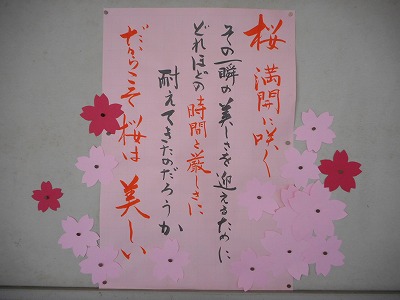 桜 満開に咲く
その一瞬の美しさを迎えるために
どれほどの時間と厳しさに
耐えてきたのだろうか
だからこそ桜は美しい